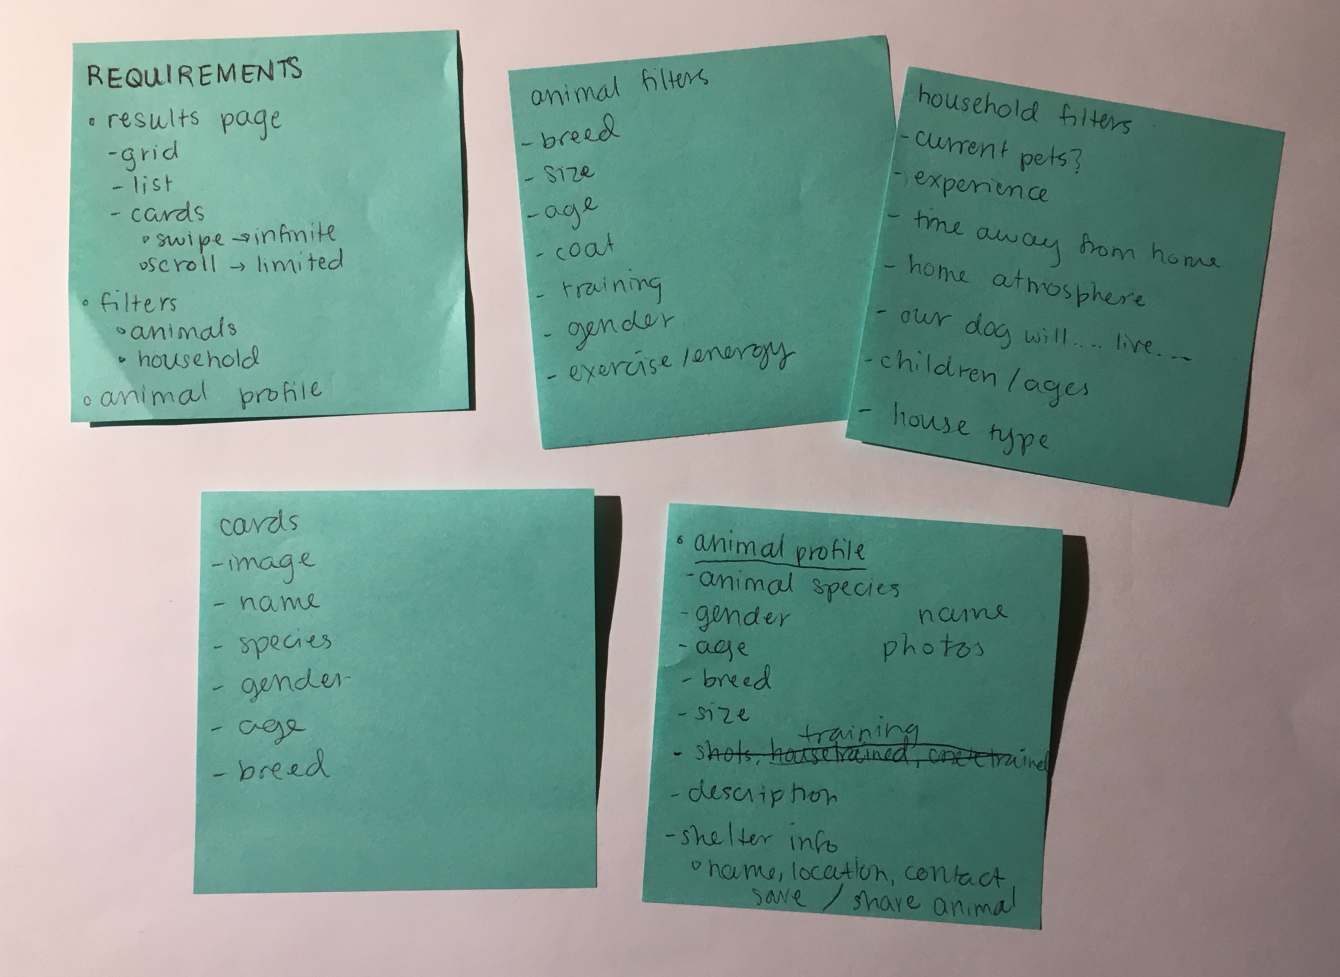 REQUIREMENTS
• results page
- grid
- list
- cards
• swipe → infinite
• scroll → limited
• filters
• animals
• household
• animal profile
animal filters
- breed
- size
- age
- coat
- training
- gender
- exercise / energy
household filters
- current pets?
- experience
- time away from home
- home atmosphere
- our dog will.... live....
- children / ages
- house type
cards
- image
- name
- species
- gender
- age
- breed
• animal profile
- animal species
- gender name
- age photos
- breed
- size
training
- shots, housetrained,
- description
- shelter info
• name, location, contact,
save / share animal